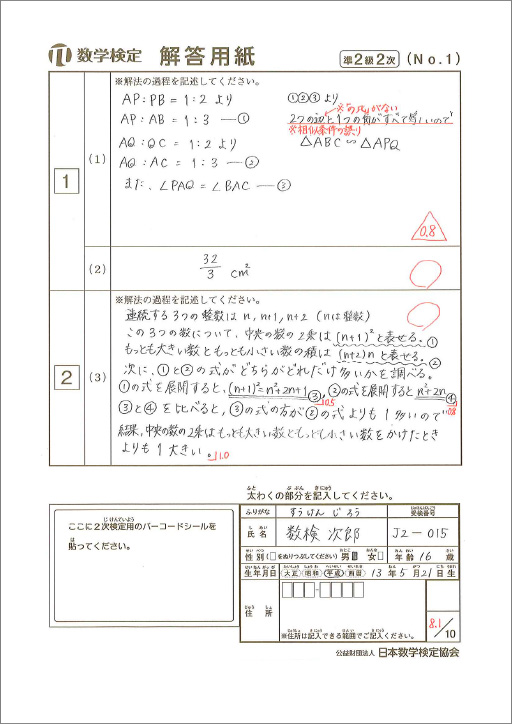 数学検定 解答用紙 準2級2次 (No.1)
1
(1)
※解法の過程を記述してください。
AP:PB = 1:2 より
AP:AB = 1:3 ―①
AQ:QC = 1:2 より
AQ:AC = 1:3 ―②
また、∠PAQ = ∠BAC ―③
①②③ より
2つの辺と1つの角がすべて等しいので
※相似条件の誤り
△ABC ∽ △APQ
0.8
(2)
32/3 cm²
2
(3)
※解法の過程を記述してください。
連続する3つの整数は n, n+1, n+2 (nは整数)
この3つの数について、中央の数の2乗は(n+1)²と表せる。①
もっとも大きい数ともっとも小さい数の積は(n+2)nと表せる。②
次に、①と②の式がどちらがどれだけ多いかを調べる。
①の式を展開すると、(n+1)²=n²+2n+1③, ②の式を展開するとn²+2n④
③と④を比べると、③の式の方が②の式よりも1多いので
結果、中央の数の2乗はもっとも大きい数ともっとも小さい数をかけたとき
よりも1大きい。 1.0
ここに2次検定用のバーコードシールを
貼ってください。
太わくの部分を記入してください。
ふりがな すうけん じろう 受検番号
氏名 数検 次郎 J2-015
性別(□をぬりつぶしてください) 男 女 年齢 16 歳
生年月日 大正 昭和 平成 西暦 13年5月21日生
住所
※住所は記入できる範囲でご記入ください。
8.1/10
公益財団法人 日本数学検定協会